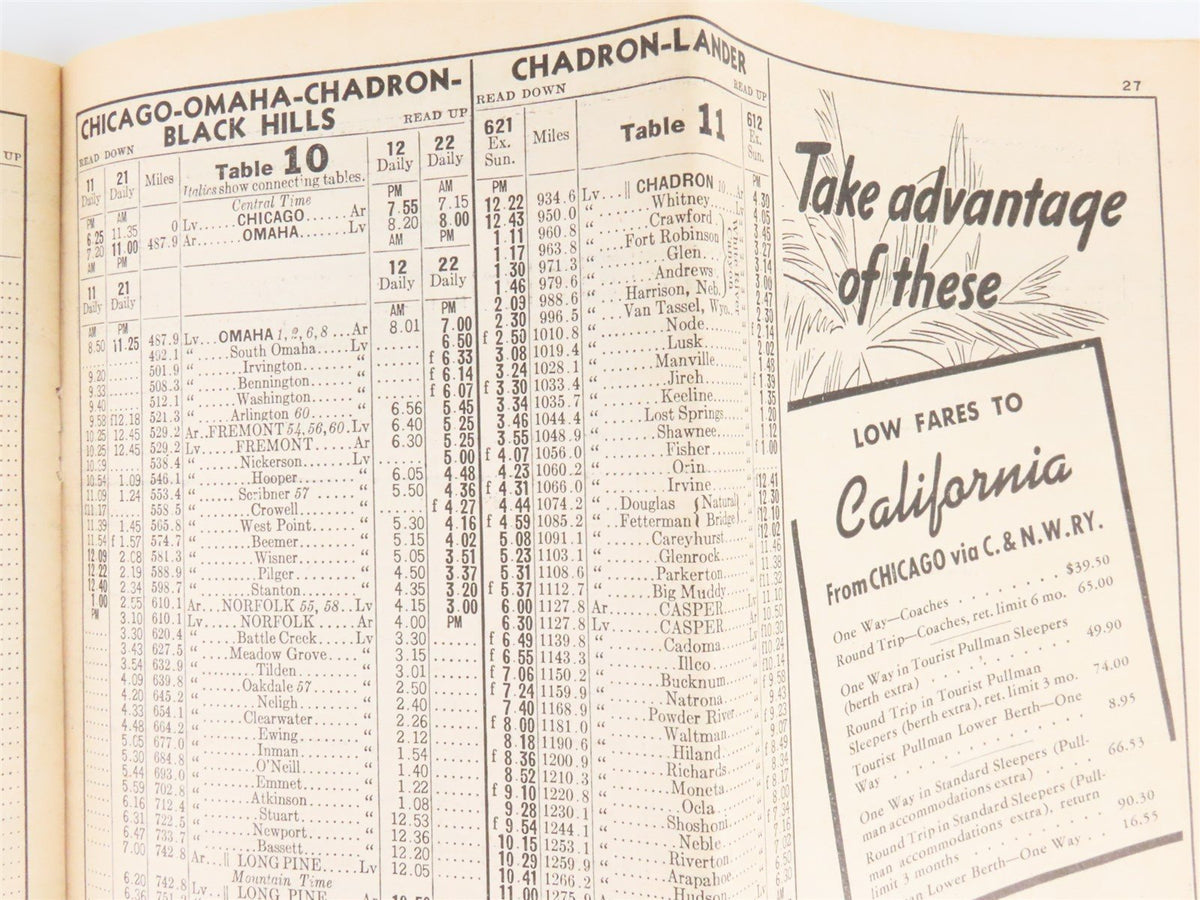 UP
CHICAGO-OMAHA-CHADRON-
BLACK HILLS
READ DOWN
READ UP
11 Daily 21 Daily Miles Table 10 12 Daily 22 Daily
Italics show connecting tables.
PM AM Central Time PM AM
6.25 11.35 0 Lv.....CHICAGO......Ar 7.55 7.15
7.20 11.00 487.9 Ar.....OMAHA.......Lv 8.20 8.00
AM PM AM PM
11 Daily 21 Daily 12 Daily 22 Daily
AM PM AM PM
8.50 11.25 487.9 Lv...OMAHA 1, 2, 6, 8...Ar 8.01 7.00
492.1 " South Omaha Lv 6.50
501.9 " Irvington " f 6.33
9.20 508.3 " Bennington " f 6.14
9.33 512.1 " Washington " f 6.07
9.40 521.3 " Arlington 60 " 6.56 5.45
9.58 f12.18 529.2 Ar..FREMONT 54, 56, 60.Lv 6.40 5.25
10.25 12.45 529.2 Lv FREMONT Ar 6.30 5.25
10.25 12.45 538.4 " Nickerson Lv 5.00
546.1 " Hooper " 6.05 4.48
10.54 1.09 553.4 " Scribner 57 " 5.50 4.36
11.09 1.24 558.5 " Crowell " f 4.27
f11.17 565.8 " West Point " 5.30 4.16
11.39 1.45 574.7 " Beemer " 5.15 4.02
11.54 f 1.57 581.3 " Wisner " 5.05 3.51
12.09 2.08 588.9 " Pilger " 4.50 3.37
12.22 2.19 598.7 " Stanton " 4.35 3.20
12.40 2.34 610.1 Ar...NORFOLK 55, 58...Lv 4.15 3.00
1.00 2.55 610.1 Lv NORFOLK Ar 4.00 PM
PM 3.10 620.4 " Battle Creek Lv 3.30
3.30 627.5 " Meadow Grove " 3.15
3.43 632.9 " Tilden " 3.01
3.54 639.8 " Oakdale 57 " 2.50
4.09 645.2 " Neligh " 2.40
4.20 654.1 " Clearwater " 2.26
4.33 664.2 " Ewing " 2.12
4.48 677.0 " Inman " 1.54
5.05 684.8 " O'Neill " 1.40
5.30 693.0 " Emmet " 1.22
5.44 702.8 " Atkinson " 1.08
5.59 712.4 " Stuart " 12.53
6.16 722.5 " Newport " 12.36
6.31 733.7 " Bassett " 12.20
6.47 742.8 Ar LONG PINE Lv 12.05
7.00
Mountain Time
6.20 742.8 Lv LONG PINE Ar
6.36
CHADRON-LANDER
READ DOWN
READ UP
621 Ex. Sun. Miles Table 11 612 Ex. Sun.
PM PM
12.22 934.6 Lv CHADRON 10 Ar 4.30
12.43 950.0 " Whitney Lv 4.05
1.11 960.8 " Crawford 3.45
1.17 963.8 " Fort Robinson 3.27
1.30 971.3 " Glen 3.14
1.46 979.6 " Andrews 3.00
2.09 988.6 " Harrison, Neb. 2.47
2.30 996.5 " Van Tassel, Wyo. 2.30
f 2.50 1010.8 " Node f 2.14
3.08 1019.4 " Lusk 2.02
3.24 1028.1 " Manville 1.48
f 3.30 1033.4 " Jireh f 1.39
3.34 1035.7 " Keeline 1.35
3.46 1044.4 " Lost Springs 1.20
3.55 1048.9 " Shawnee 1.12
f 4.07 1056.0 " Fisher f 1.00
4.23 1060.2 " Orin
f 4.31 1066.0 " Irvine f12.41
4.44 1074.2 " Douglas (Natural 12.30
f 4.59 1085.2 " Fetterman Bridge) f12.10
5.08 1091.1 " Careyhurst f12.02
5.23 1103.1 " Glenrock 11.46
5.31 1108.6 " Parkerton 11.38
f 5.37 1112.7 " Big Muddy f11.32
6.00 1127.8 Ar CASPER Lv 11.10
6.30 1127.8 Lv CASPER Ar 10.50
f 6.49 1139.8 " Cadoma f10.30
f 6.55 1143.3 " Illco f10.24
f 7.06 1150.2 " Bucknum f10.14
f 7.24 1159.9 " Natrona f 9.58
7.40 1168.9 " Powder River 9.43
f 8.00 1181.0 " Waltman f 9.23
8.18 1190.6 " Hiland 9.07
f 8.36 1200.9 " Richards f 8.49
8.52 1210.3 " Moneta
f 9.10 1220.8 " Ocla f 8.17
9.28 1230.1 " Shoshoni
f 9.54 1244.1 " Neble
10.15 1253.1 " Riverton
10.29 1259.9 " Arapahoe
10.41 1266.2 " Hudson
11.00 1275.9
27
Take advantage
of these
LOW FARES TO
California
From CHICAGO via C. & N. W. RY.
One Way—Coaches . . . . . . . . $39.50
Round Trip—Coaches, ret. limit 6 mo. 65.00
One Way in Tourist Pullman Sleepers
(berth extra) . . . . . . . . 49.90
Round Trip in Tourist Pullman
Sleepers (berth extra), ret. limit 3 mo. 74.00
Tourist Pullman Lower Berth—One
Way . . . . . . . . 8.95
One Way in Standard Sleepers (Pull-
man accommodations extra) . . . . 66.53
Round Trip in Standard Sleepers (Pull-
man accommodations extra), return
limit 3 months . . . . . . . 90.30
Lower Berth—One Way . . 16.55